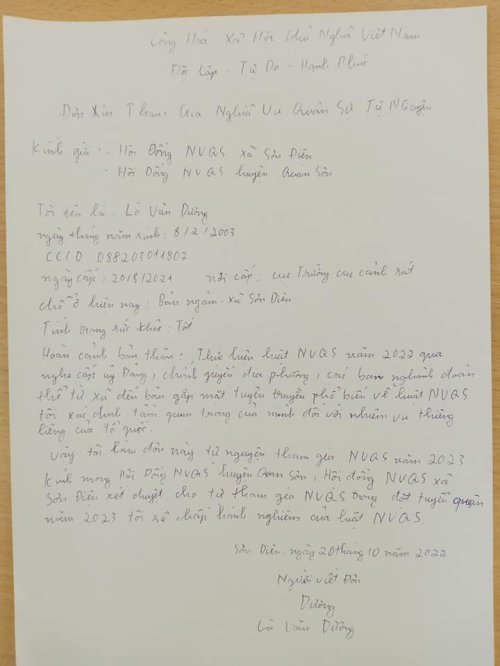 Cộng Hoà Xã Hội Chủ Nghĩa Việt Nam
Độc Lập - Tự Do - Hạnh Phúc
Đơn Xin Tham Gia Nghĩa Vụ Quân Sự Tự Nguyện
Kính gửi: - Hội Đồng NVQS xã Sơn Điện
- Hội Đồng NVQS huyện Quan Sơn
Tôi tên là: Lò Văn Dường
ngày tháng năm sinh: 8/2/2003
CCCD: 038203011802
ngày cấp: 20/8/2021 nơi cấp: cục Trưởng cục cảnh sát
chỗ ở hiện nay: Bản ngàm - xã Sơn Điện
Tình trạng sức khỏe: Tốt
Hoàn cảnh bản thân: Thực hiện luật NVQS năm 2022 qua
nghe cấp uỷ Đảng, chính quyền địa phương, các ban nghành đoàn
thể từ xã đến bản gặp mặt tuyên truyền phổ biến về luật NVQS
tôi xác định tầm quan trọng của mình đối với nhiệm vụ thiêng
liêng của tổ quốc.
Vậy tôi làm đơn này tự nguyện tham gia NVQS năm 2023
Kính mong Hội Đồng NVQS huyện Quan Sơn, Hội đồng NVQS xã
Sơn Điện xét duyệt cho tôi tham gia NVQS trong đợt tuyển quân
năm 2023 tôi sẽ chấp hành nghiêm của luật NVQS.
Sơn Điện ngày 20 tháng 10 năm 2022
Người viết Đơn
Dường
Lò Văn Dường